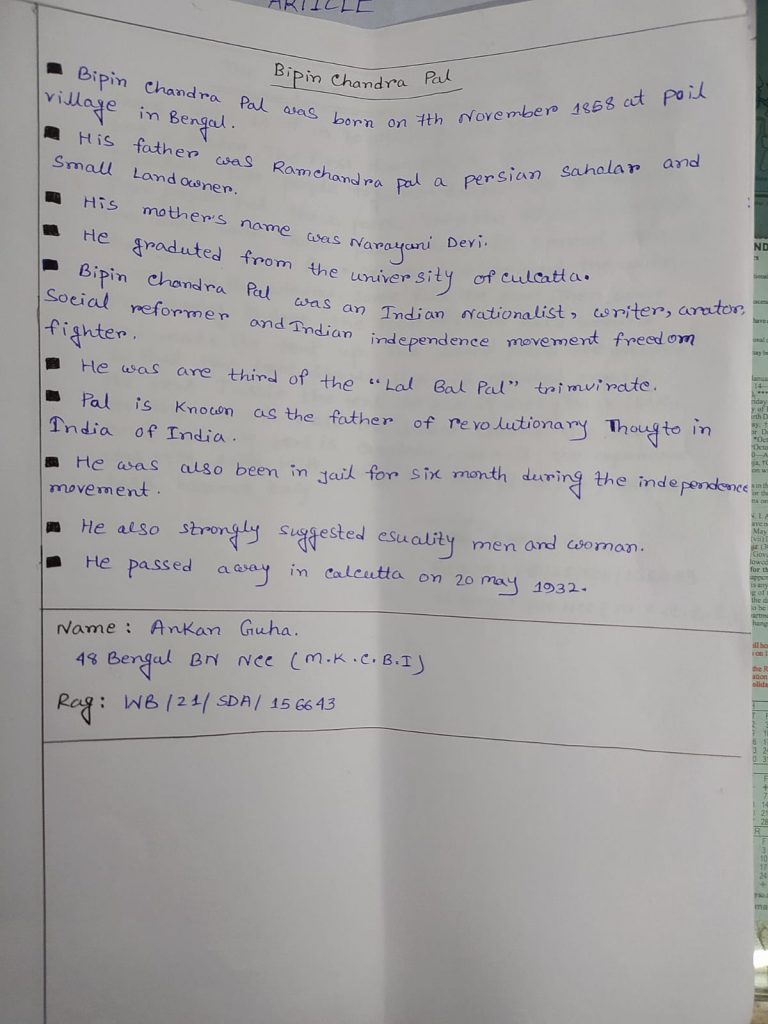 ARTICLE
Bipin Chandra Pal
Bipin Chandra Pal was born on 7th November 1858 at poil
village in Bengal.
His father was Ramchandra pal a persian sahalar and
Small Landowner.
His mother's name was Narayani Devi.
He graduted from the university of culcatta.
Bipin Chandra Pal was an Indian Nationalist, writer, arator,
Social reformer and Indian independence movement freedom
fighter.
He was are third of the "Lal Bal Pal" trimvirate.
Pal is Known as the father of revolutionary Thougto in
India of India.
He was also been in jail for six month during the independence
movement.
He also strongly suggested esuality men and woman.
He passed away in calcutta on 20 may 1932.
Name: Ankan Guha.
48 Bengal BN NCC (M.K.C.B.I)
Rag: WB/21/SDA/156643